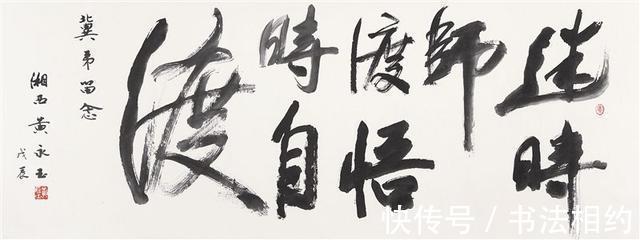 迷時
師
渡悟
時自
渡
冀弟留念
湘西黄永玉
戊辰
快传号 / 书法相约